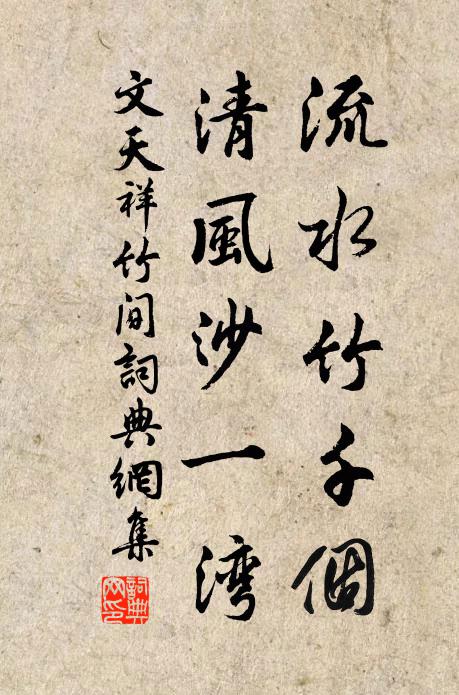 流水竹千個
清風沙一灣
文天祥竹間詞典網集
詞典网印